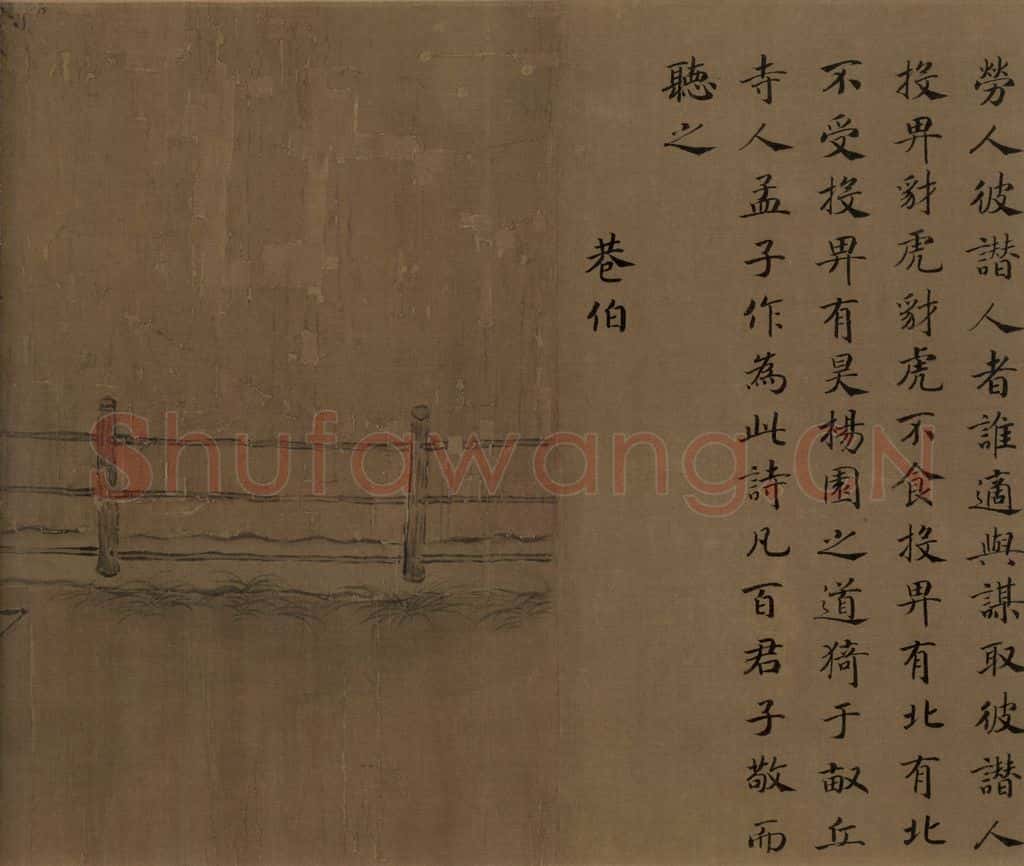 勞人彼譖人者誰適與謀取彼譖人
投畀豺虎豺虎不食投畀有北有北
不受投畀有昊楊園之道猗于畝丘
寺人孟子作為此詩凡百君子敬而
聽之
巷伯
Shufawang.CN